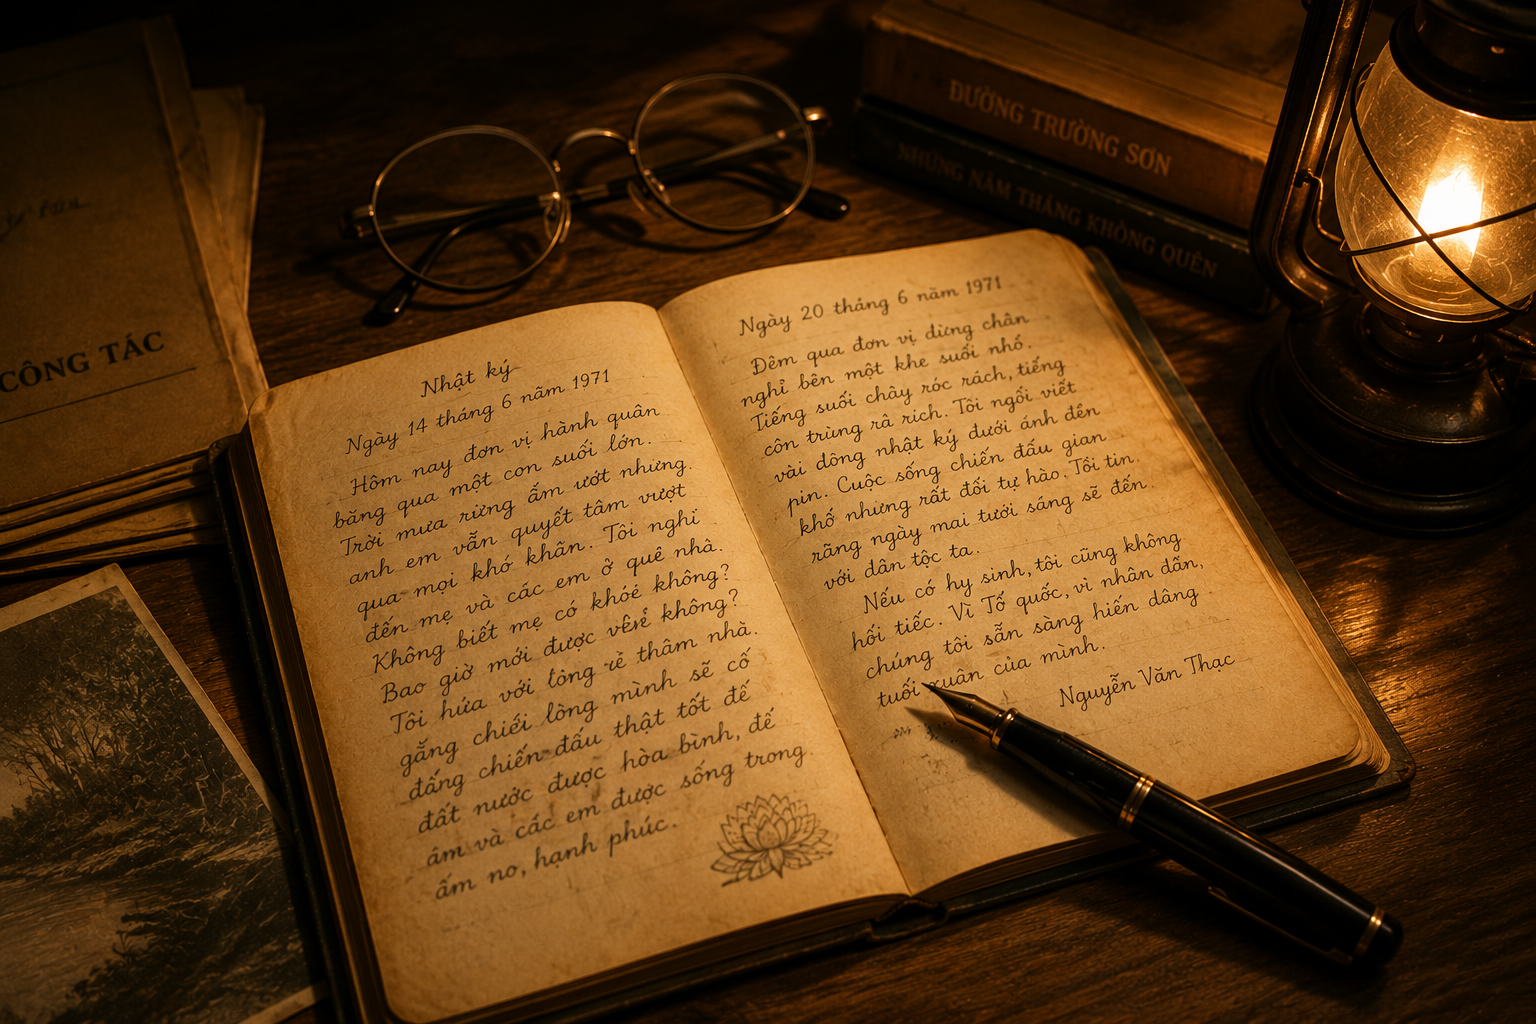 CÔNG TÁC
ĐƯỜNG TRƯỜNG SƠN
NHỮNG NĂM THÁNG KHÔNG QUÊN
Nhật ký
Ngày 14 tháng 6 năm 1971
Hôm nay đơn vị hành quân
băng qua một con suối lớn.
Trời mưa rừng ẩm ướt nhưng
anh em vẫn quyết tâm vượt
qua mọi khó khăn. Tôi nghĩ
đến mẹ và các em ở quê nhà.
Không biết mẹ có khỏe không?
Bao giờ mới được không?
Tôi hứa với thăm nhà.
gắng lòng mình sẽ cố
chiến đấu thật tốt để
đất nước được hòa bình, để
và các em được sống trong
ấm no, hạnh phúc.
Ngày 20 tháng 6 năm 1971
Đêm qua đơn vị dừng chân
nghỉ bên một khe suối nhỏ.
Tiếng suối chảy róc rách, tiếng
côn trùng rả rích. Tôi ngồi viết
vài dòng nhật ký dưới ánh đèn
pin. Cuộc sống chiến đấu gian
khổ nhưng rất đỗi tự hào. Tôi tin
rằng ngày mai tươi sáng sẽ đến
với dân tộc ta.
Nếu có hy sinh, tôi cũng không
hối tiếc. Vì Tổ quốc, vì nhân dân,
chúng tôi sẵn sàng hiến dâng
tuổi xuân của mình.
Nguyễn Văn Thạc